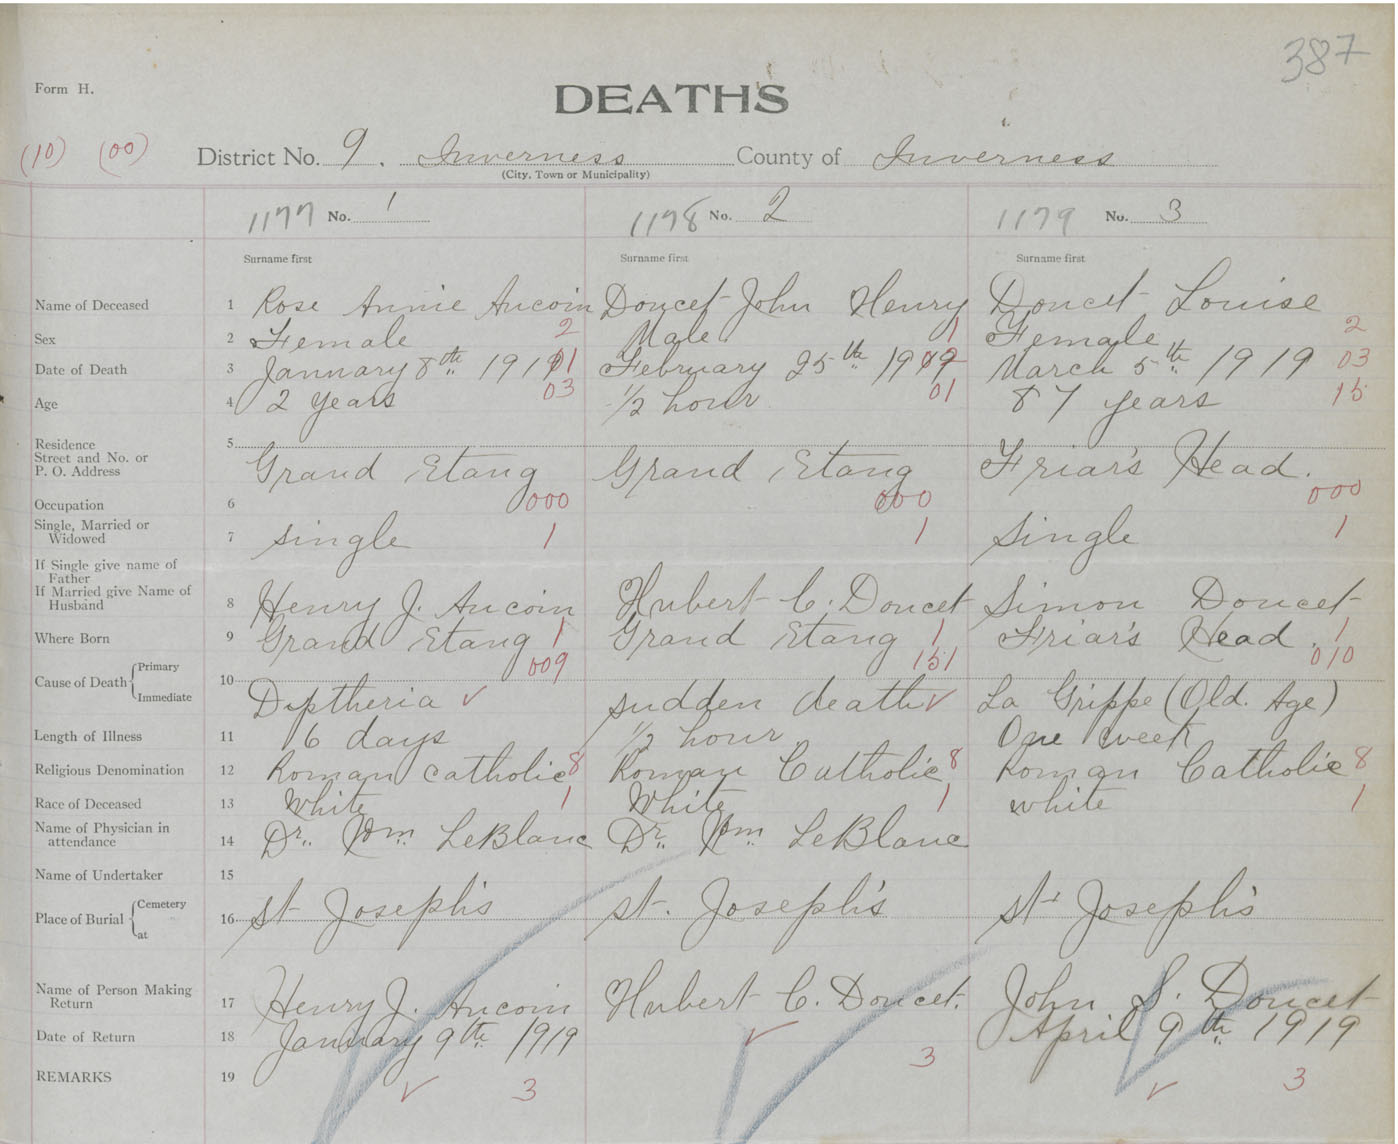 387
Form H.
DEATHS
(10) (00) District No. 9. Inverness County of Inverness
(City, Town or Municipality)
1177 No. 1 1178 No. 2 1179 No. 3
Surname first Surname first Surname first
Name of Deceased 1 Rose Annie Aucoin Doucet John Henry Doucet Louise
Sex 2 Female 2 Male 1 Female 2
Date of Death 3 January 8th 1919 01 February 25th 1919 02 March 5th 1919 03
Age 4 2 years 03 1/2 hour 01 87 years 15
Residence 5
Street and No. or
P. O. Address Grand Etang Grand Etang Friar's Head.
Occupation 6 000 000 000
Single, Married or
Widowed 7 single 1 1 single 1
If Single give name of
Father
If Married give Name of
Husband 8 Henry J. Aucoin Hubert C. Doucet Simon Doucet
Where Born 9 Grand Etang 1 Grand Etang 1 Friar's Head. 1
009 151 010
Cause of Death Primary 10
Immediate Diptheria ✓ sudden death ✓ La Grippe (Old. Age)
Length of Illness 11 6 days 1/2 hour One week
Religious Denomination 12 Roman catholic 8 Roman Catholic 8 Roman Catholic 8
Race of Deceased 13 White 1 White 1 white 1
Name of Physician in
attendance 14 Dr. Wm. LeBlanc Dr. Wm. LeBlanc
Name of Undertaker 15
Place of Burial Cemetery 16 st Joseph's st. Joseph's st. Joseph's
at
Name of Person Making
Return 17 Henry J. Aucoin Hubert C. Doucet. John S. Doucet
Date of Return 18 January 9th 1919 ✓ April 9th 1919
REMARKS 19 ✓ 3 3 ✓ 3